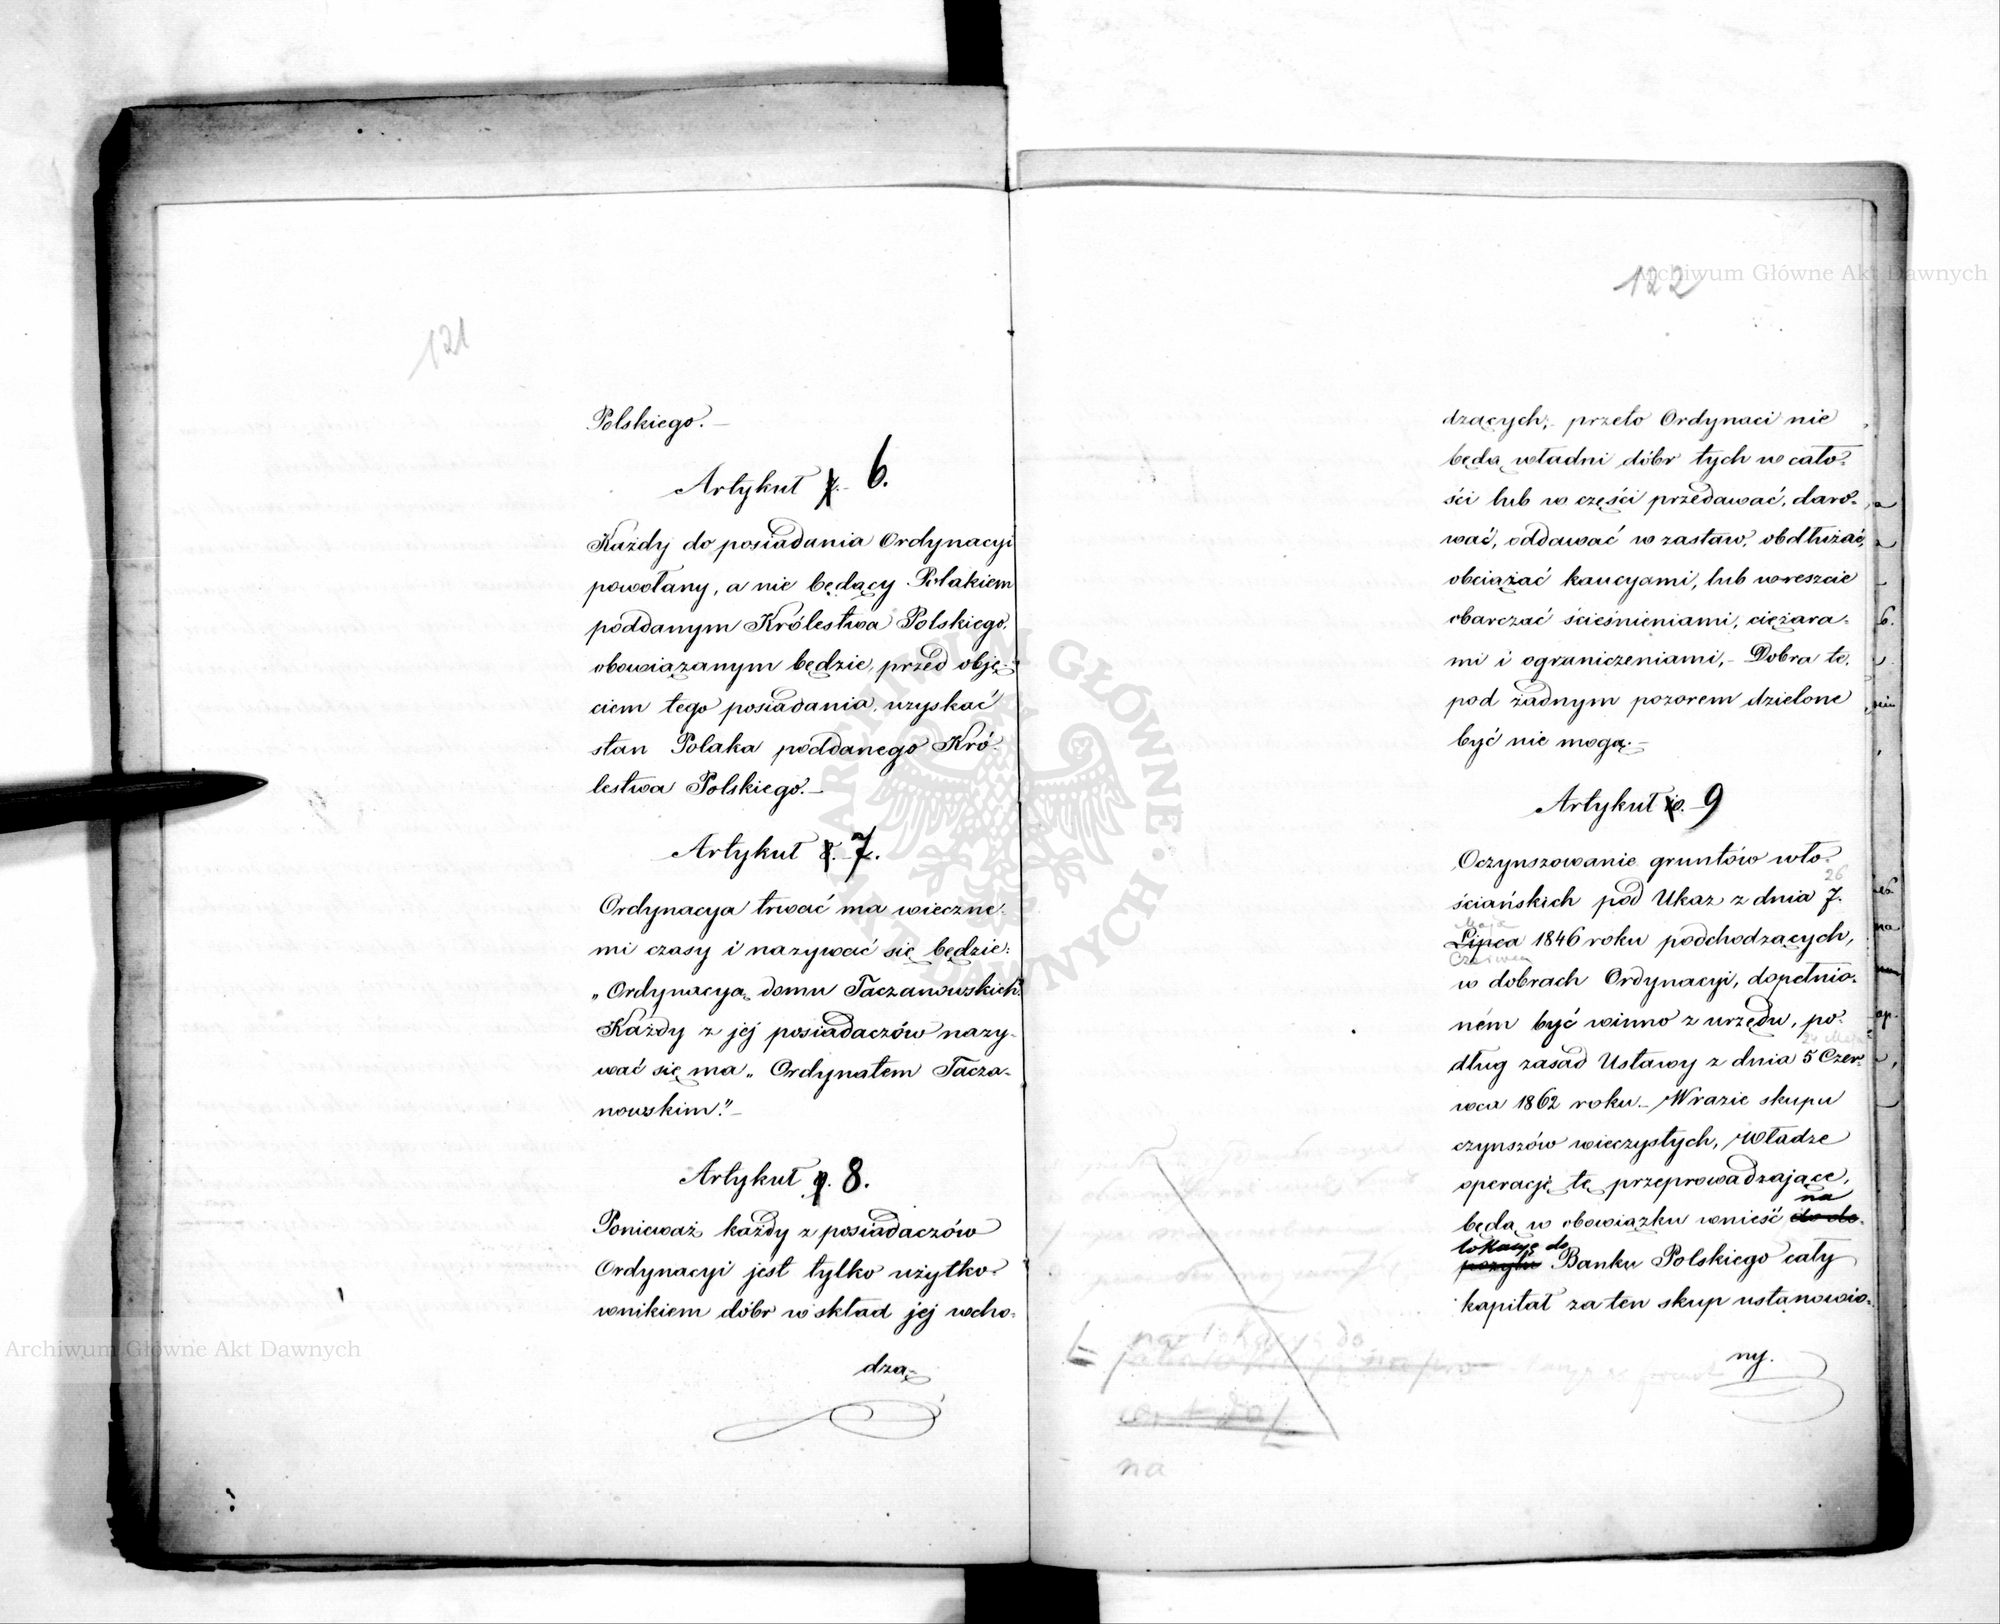 121
Polskiego.—
Artykuł 7. 6.
Każdy do posiadania Ordynacyi
powołany, a nie będący Polakiem
poddanym Królestwa Polskiego,
obowiązanym będzie, przed obję-
ciem tego posiadania, uzyskać
stan Polaka poddanego Kró-
lestwa Polskiego.—
Artykuł 8. 7.
Ordynacya trwać ma wieczne-
mi czasy i nazywać się będzie:
„Ordynacyą domu Taczanowskich."
Każdy z jej posiadaczów nazy-
wać się ma „Ordynatem Tacza-
nowskim."—
Artykuł 9. 8.
Ponieważ każdy z posiadaczów
Ordynacyi jest tylko użytko-
wnikiem dóbr w skład jej wcho-
dzą-
122
dzących; przeto Ordynaci nie
będą władni dóbr tych w cało-
ści lub w części przedawać, daro-
wać, oddawać w zastaw, obdłużać,
obciążać kaucyami, lub wreszcie
obarczać ścieśnieniami, ciężara-
mi i ograniczeniami,— Dobra te,
pod żadnym pozorem dzielone
być nie mogą.—
Artykuł 10. 9
Oczynszowanie gruntów wło-
26
ściańskich pod Ukaz z dnia 7.
Maja
Lipca 1846 roku podchodzących,
Czerwca
w dobrach Ordynacyi, dopełnio-
ném być winno z urzędu, po-
24 Maja
dług zasad Ustawy z dnia 5 Czer-
wca 1862 roku.— W razie skupu
czynszów wieczystych, Władze
operacyę tę przeprowadzające,
na
będą w obowiązku wnieść do de-
lokacyę do
pozytu Banku Polskiego cały
kapitał za ten skup ustanowio-
ny.
na lokacyę do
na
Archiwum Główne Akt Dawnych
Archiwum Główne Akt Dawnych
ARCHIWUM GŁÓWNE AKT DAWNYCH